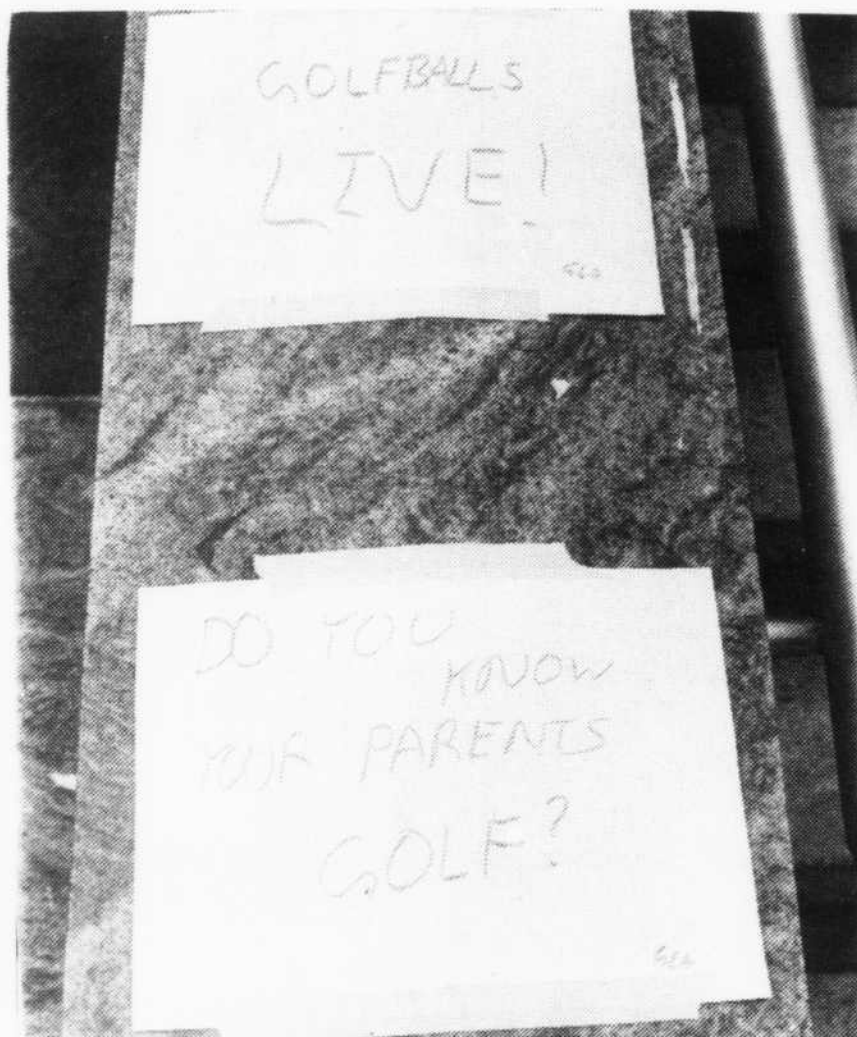 GOLFBALLS
LIVE!
DO YOU
KNOW
YOUR PARENTS
GOLF?